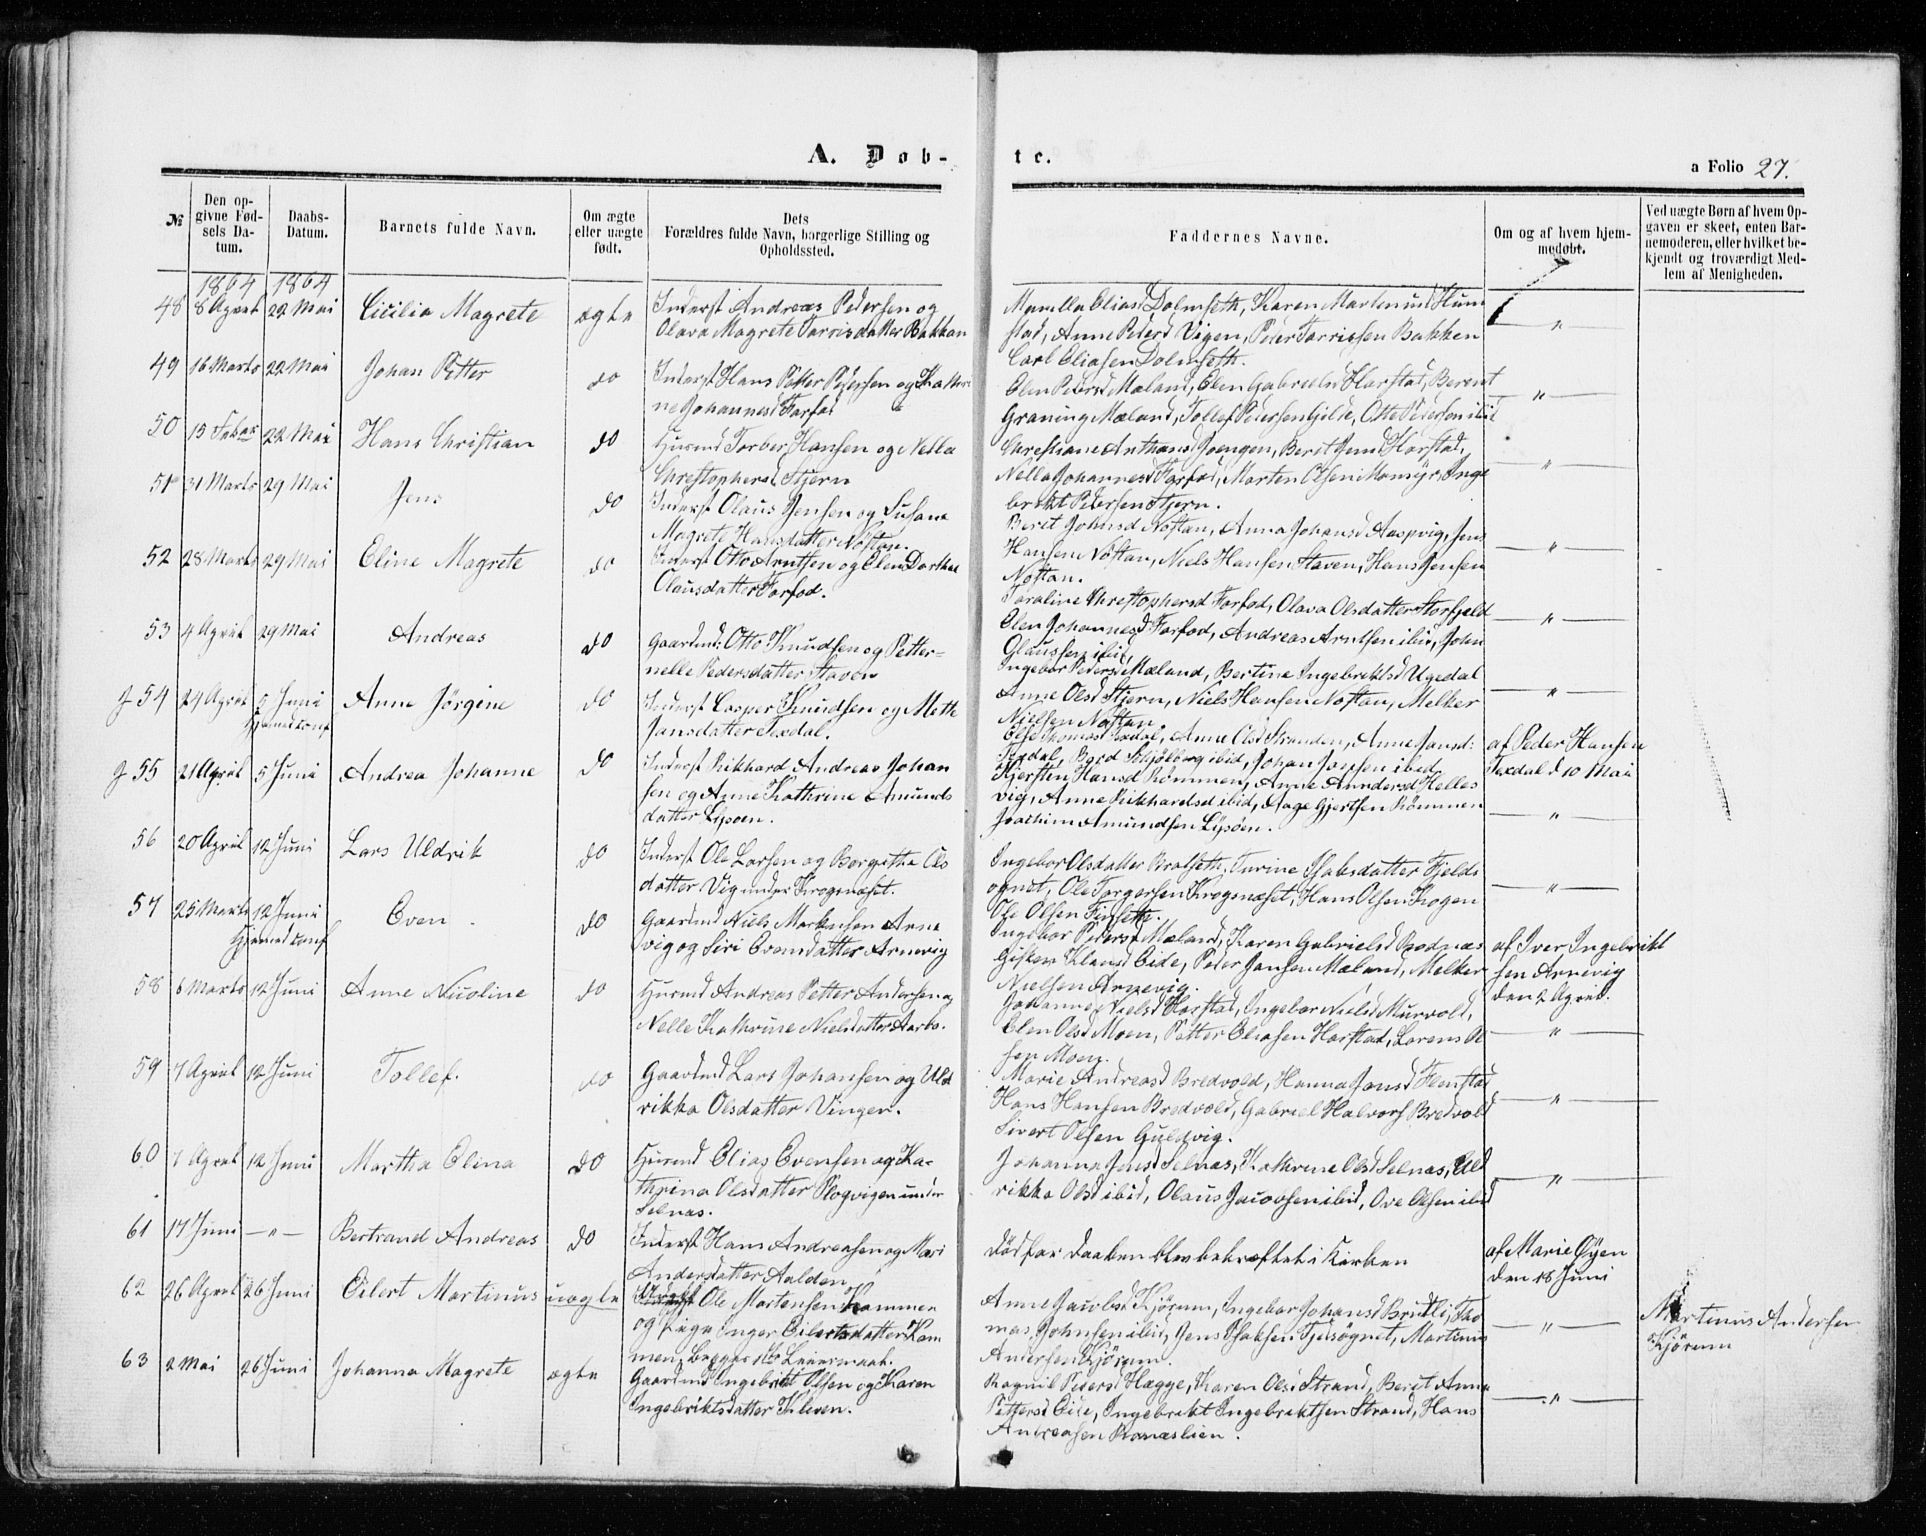 A. Døb-
te.
a Folio 27.
№
Den op-
givne Fød-
sels Da-
tum.
Daabs-
Datum.
Barnets fulde Navn.
Om ægte
eller uægte
født.
Dets
Forældres fulde Navn, borgerlige Stilling og
Opholdssted.
Faddernes Navne.
Om og af hvem hjem-
medøbt.
Ved uægte Børn af hvem Op-
gaven er skeet, enten Bar-
nemoderen, eller hvilket be-
kjendt og troværdigt Med-
lem af Menigheden.
1864 1864
48 8 April 22 Mai Cicilia Magrete ægte Inderst Andreas Pedersen og
Olava Magrete Tarrisdatter Bakken
Elias Dolmseth, Karen Martinusd Hum
stad, Anne Pedersd Vigen, Peder Tarrisen Bakken
Carl Eliasen Dolmseth.
49 16 Marts 22 Mai Johan Petter do Inderst Hans Petter Pedersen og Kathri
ne Johannesd Farfod
Elen Pedersd Mæland, Elen Gabrielsd Harstad, Berent
Graning Mæland, Tollef Pedersen Gilde, Otte Pedersen ibid
50 15 Febr 22 Mai Hans Christian do Huusmd Torber Hansen og Nella
Christophersd Stjern
Christiane Anthonsd Hoengen, Beret Jensd Harstad,
Nella Johannesd Farfod, Morten Olsen Mamyr, Inge
brikt Petersen Stjern.
51 31 Marts 29 Mai Jens do Inderst Olaus Jensen og Susana
Magrete Hansdatter Nøstan.
Beret Johnsd Nøstan, Anna Johansd Aaspvig, Jens
Hansen Nøstan, Niels Hansen Staven, Hans Jensen
Nøstan.
52 28 Marts 29 Mai Eline Magrete do Inderst Otto Arntsen og Elen Dorthea
Olausdatter Farfod.
Taraline Christophersd Farfod, Olava Olsdatter Storfjeld
Elen Johannesd Farfod, Andreas Arntsen ibid, John
Olaussen ibid,
53 4 April 29 Mai Andreas do Gaardmd: Otto Knudsen og Petter-
nelle Pedersdatter Staven
Ingebor Pedersd Mæland, Bertine Ingebriktsd Ugedal
Anne Olsd Stjern, Niels Hansen Nøstan, Melker
Nielsen Nøstan.
g 54 24 April 5 Juni Anne Jørgine do Inderst Casper Knudsen og Mette
Hjemd conf
Jansdatter Texdal.
Else Thomasd Texdal, Anne Olsd Stranden, Anne Jansd:
Texdal, Bard Schjølberg ibid, Johan Jansen ibid
af Peder Hansen
Texdal d 10 Mai
g 55 21 April 5 Juni Andrea Johanne do Inderst Rikhard Andreas Johan
sen og Anne Kathrine Amunds
datter Lysøen.
Kjersten Hansd Rømmen, Anne Andersd Helles
vig, Anne Rikhardsd ibid, Aage Gjertsen Rømmen
Joachim Amundsen Lysøen.
56 20 April 12 Juni Lars Uldrik do Inderst Ole Larsen og Borgitha Ols
datter Vig under Krogsnæset.
Ingebor Olsdatter Bratseth, Turine Isaksdatter Fjelds
ognet, Ole Torgersen Krogsnæset, Hans Olsen Krogen
Ole Olsen Finseth.
57 25 Marts 12 Juni Even do Gaardmd Niels Martinsen Arne
Hjemd conf
vig og Siri Evensdatter Arnevig
Ingebor Pedersd Mæland, Karen Gabrielsd Rodnæs
Gisken Klausd Eide, Peder Jansen Mæland, Melker
Nielsen Arnevig.
af Iver Ingebrikt
sen Arnevig
den 2 April.
58 6 Marts 12 Juni Anne Nicoline do Huusmd Andreas Petter Andersen og
Nelle Kathrine Nielsdatter Aarbo.
Johanne Nielsd Harstad, Ingebor Nielsd Murvold,
Elen Olsd Moen, Petter Eliasen Harstad, Lorens Ol
sen Moen.
59 7 April 12 Juni Tollef. do Gaardmd Lars Johansen og Uld
rikka Olsdatter Vingen.
Marie Andreasd Bredvold, Hanna Jansd Flenstad
Hans Hansen Bredvold, Gabriel Halvors Bredvold
Sivert Olsen Guldvig.
60 7 April 12 Juni Martha Elina do Huusmd Elias Evensen og Ka-
thrina Olsdatter Plogvigen under
Selnas.
Johanna Jensd Selnas, Kathrine Olsd Selnas, Uld
rikka Olsd ibid, Olaus Jacobsen ibid, Ove Olsen ibid
61 17 Juni — " — Bertrand Andreas do Inderst Hans Andreasen og Mari
Andersdatter Aalden
Død før Daaben blev bekræftet i Kirken
af Marie Øyen
den 18 Juni
62 26 April 26 Juni Eilert Martinus uægte Ole Martensen Kammen
og Pige Inger Eilertsdatter Kam
men, begges 1ste Leiermaal.
Anne Jacobsd Kjørum, Ingebor Johansd Brudli, Tho
mas Johnsen ibid, Jens Isaksen Fjeldsøgnet, Martinus
Andersen Kjørum.
Martinus Andersen
Kjørum
63 2 Mai 26 Juni Johanna Magrete ægte Gaardmd Ingebrikt Olsen og Karen
Ingebriktsdatter Kleven.
Ragnil Pedersd Hægge, Karen Olsd Strand, Beret Anna
Pettersd Eide, Ingebrikt Ingebriktsen Strand, Hans
Andreasen Ramaslien.